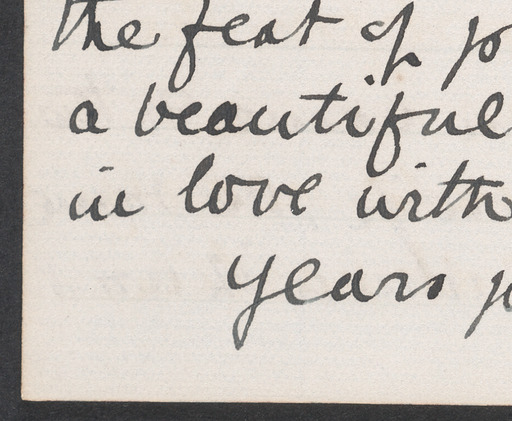 the feat of
a beautiful
in love with
years